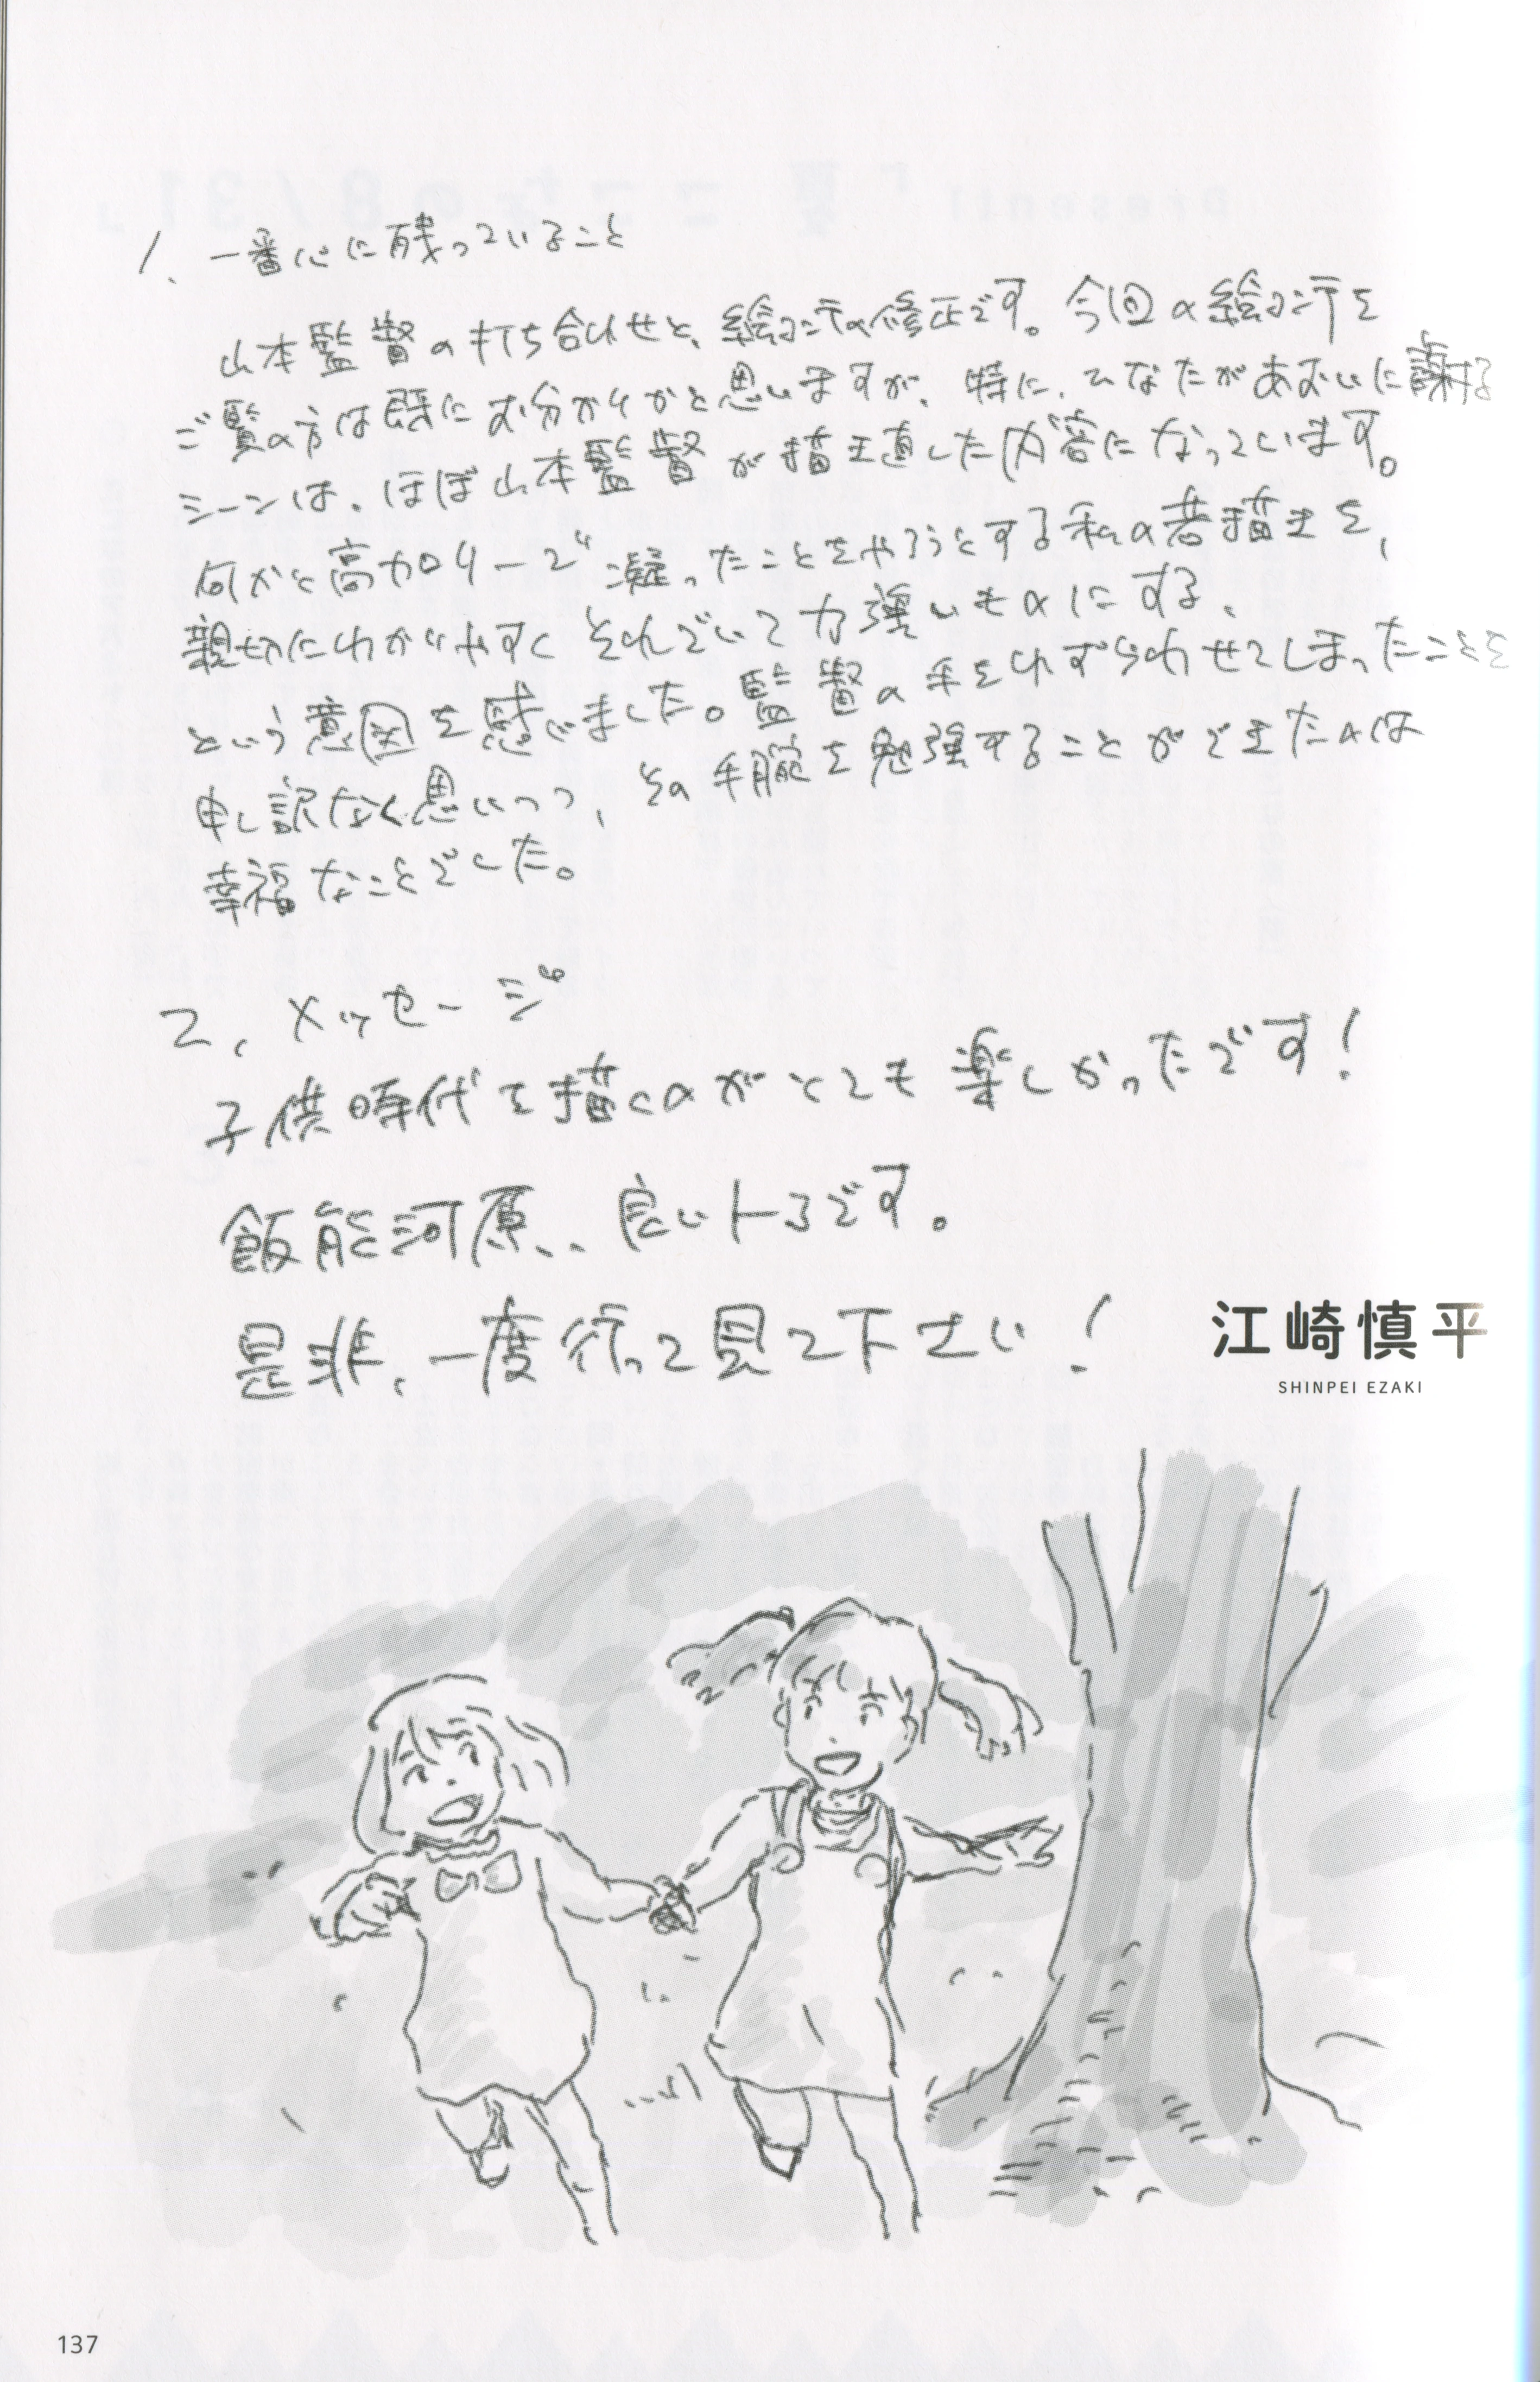 1、一番心に残っていること
山本監督の打ち合わせと、絵コンテの修正です。今回の絵コンテを
ご覧の方は既にお分かりかと思いますが、特に、ひなたがあおいに謝る
シーンは、ほぼ山本監督が描き直した内容になっています。
何かと高カロリーで凝ったことをやろうとする私の芝描きを、
親切にわかりやすくそれでいて力強いものにする、
という意図を感じました。監督の手をわずらわせてしまったことを
申し訳なく思いつつ、その手腕を勉強することができたのは
幸福なことでした。
2、メッセージ
子供時代を描くのがとても楽しかったです！
飯能河原、、良いトコです。
是非、一度行って見て下さい！
江崎慎平
SHINPEI EZAKI
137